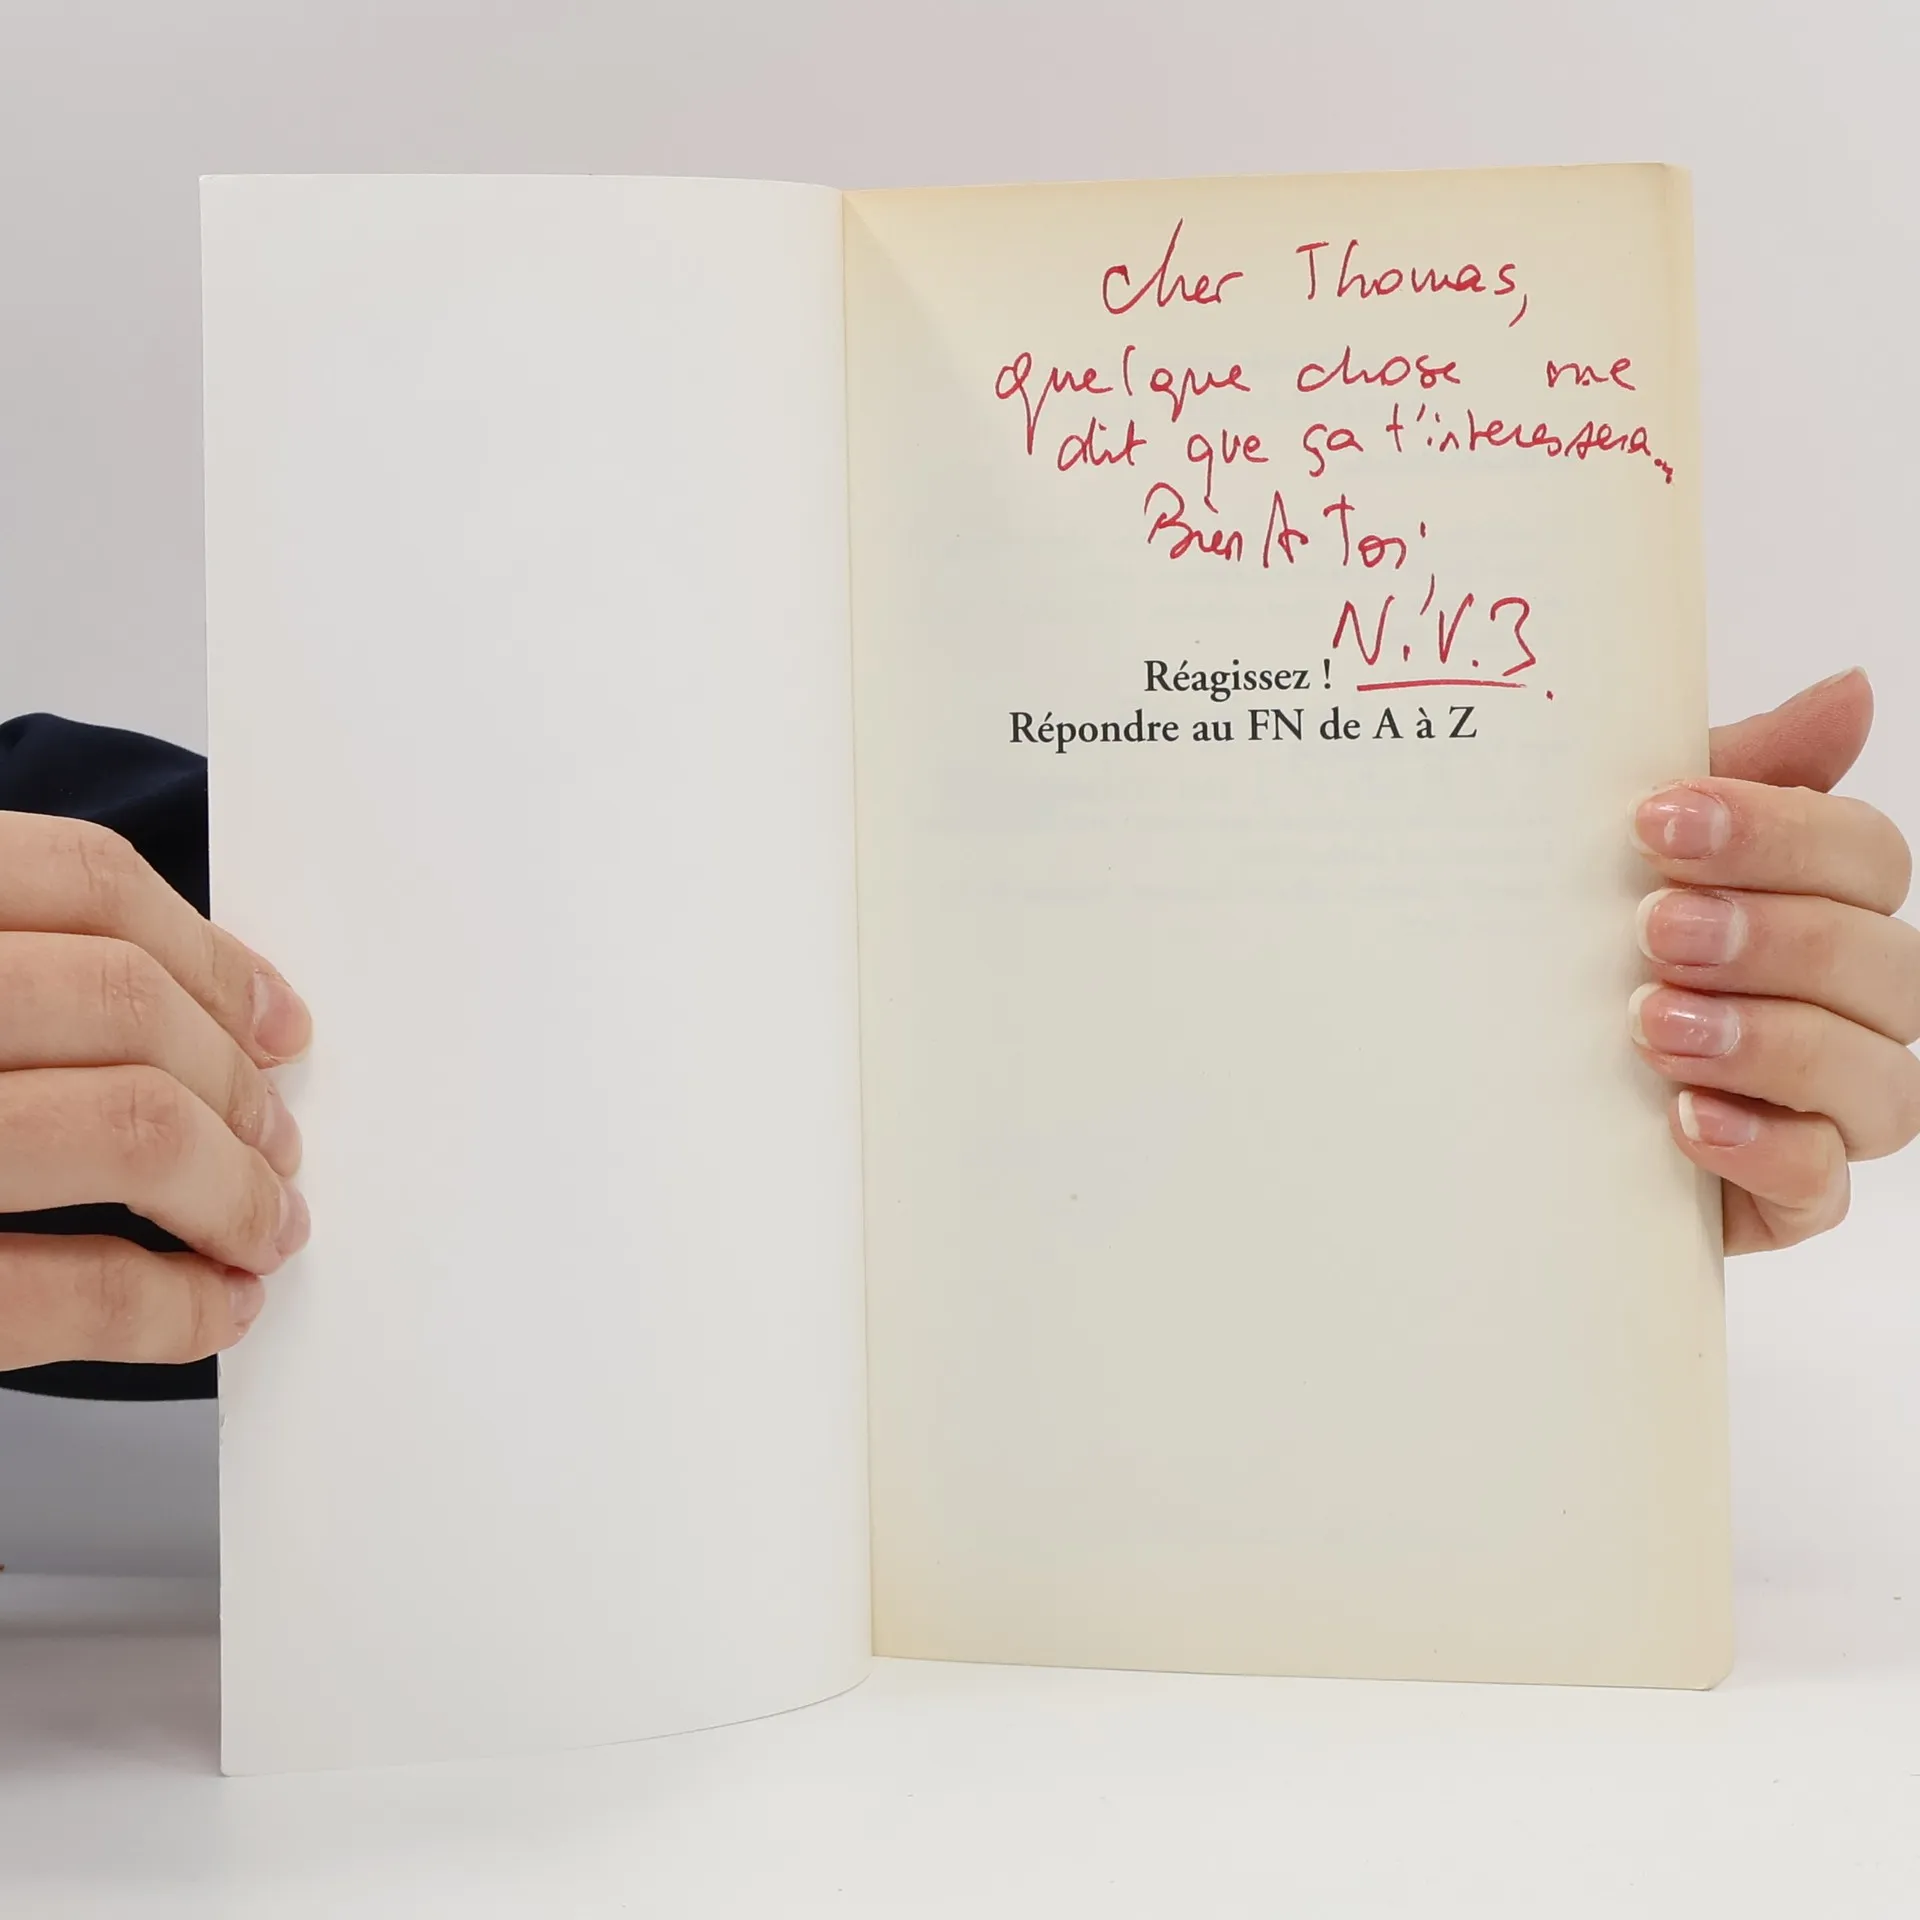 Cher Thomas,
quelque chose me
dit que ça t'interessera.
Bien A Toi,
N.V.3.
Réagissez !
Répondre au FN de A à Z